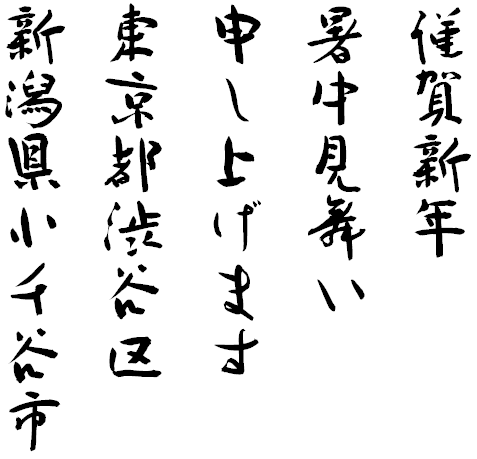 謹賀新年
暑中見舞い
申し上げます
東京都渋谷区
新潟県小千谷市